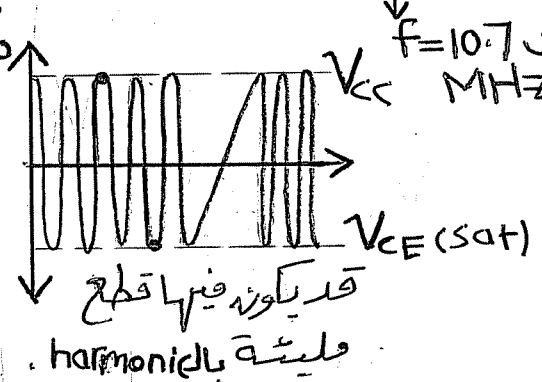 f = 10.7
MHz
Vcc
VCE (sat)
قد يكون فيها قطع
مليئة بال harmonic .